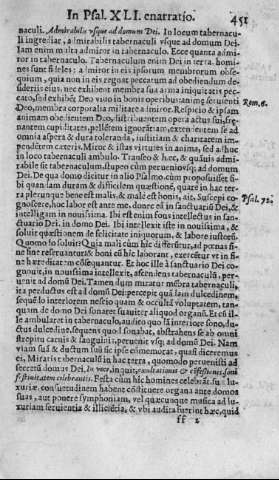 In Psal. XLI. enarratio. 451
naculi. Admirabilis vsque ad domum Dei. In locum tabernacu
li ingrediar, admirabilis tabernaculi vsque ad domum Dei.
Iam enim multa admiror in tabernaculo. Ecce quanta admi-
ror in tabernaculo. Tabernaculum enim Dei in terra, homi-
nes sunt fideles: admiror in eis ipsorum membrorum obse-
quium, quia non in eis regnat peccatum ad obediendum de-
sideriis eius, nec exhibent membra sua arma iniquitatis pec-
cato, sed exhibent Deo viuo in bonis operibus
Rom. 6.
Deo, membra corporalia militare admiror. Respicio & ipsam
animam obedientem Deo, distribuentem opera actus sui, frę-
nantem cupiditates, pellentem ignorantiam, extendentem se ad
omnia aspera & dura toleranda, iustitiam & charitatem im-
pendentem cæteris. Miror & istas virtutes in anima, sed adhuc
in loco tabernaculi ambulo. Transeo & hęc, & quāuis admi-
rabile sit tabernaculum, stupeo cùm peruenio vsque ad domum
Dei. De qua domo dicitur in alio Psalmo cùm proposuisset si-
bi quandam duram & difficilem quæstionē, quare in hac ter-
ra plerunque bene est malis, & male est bonis, ait, Suscepi co-
gnoscere, hoc labor est ante me, donec
Psal. 72.
intelligam in nouissima. Ibi est enim fons intellectus in san-
ctuario Dei, in domo Dei. Ibi intellexit iste in nouissima, &
soluit quæstionem de felicitate iniquorum, & labore iustorū.
Quomodo soluit? Quia mali cùm hîc differuntur, ad pœnas si-
ne fine reseruantur: & boni cùm hîc laborant, exercentur vt in fi-
ne hæreditatem consequantur. Et hoc ille in sanctuario Dei co-
gnouit, in nouissima intellexit, ascendens tabernaculū, per-
uenit ad domū Dei. Tamen dum miratur mēbra tabernaculi,
ita perductus est ad domū Dei
sequēdo interiorem nescio quam & occultā voluptatem, tan-
quam de domo Dei sonaret suauiter aliquod organū. Et cū il-
le ambularet in tabernaculo, audito quodā interiore sono, du-
ctus dulcedine, sequens quod sonabat, abstrahens se ab omni
strepitu carnis & sanguinis, peruenit vsque ad domū Dei. Nam
viam suā & ductum suū sic ipse cōmemorat, quasi diceremus
ei, Miraris tabernaculū in hac terra, quomodo peruenisti ad
secretū domus Dei. In voce, inquit, exultationis & cōfessionis, soni
festiuitatem celebrantis. Festa cùm hîc homines celebrāt suæ lu-
xuriæ, consuetudinem habent cōstituere organa ante domos
suas, aut ponere symphoniam, vel quæcunque musica ad lu-
xuriam seruientia & illicientia, & vbi audita fuerint hæc, quid
ff 2